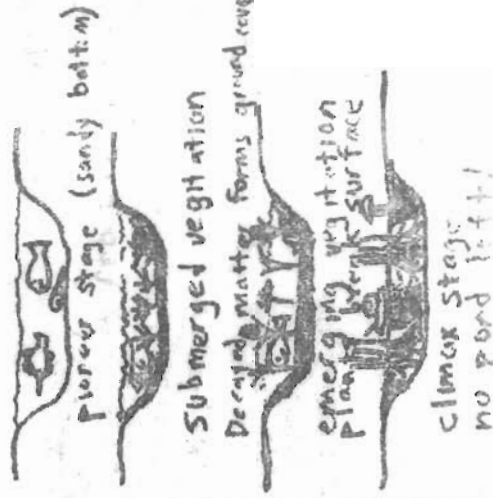 pioneer stage (sandy bottom)
submerged vegitation
Decayed matter forms ground cover
emerging vegitation
plants break surface
climax stage
no pond left!